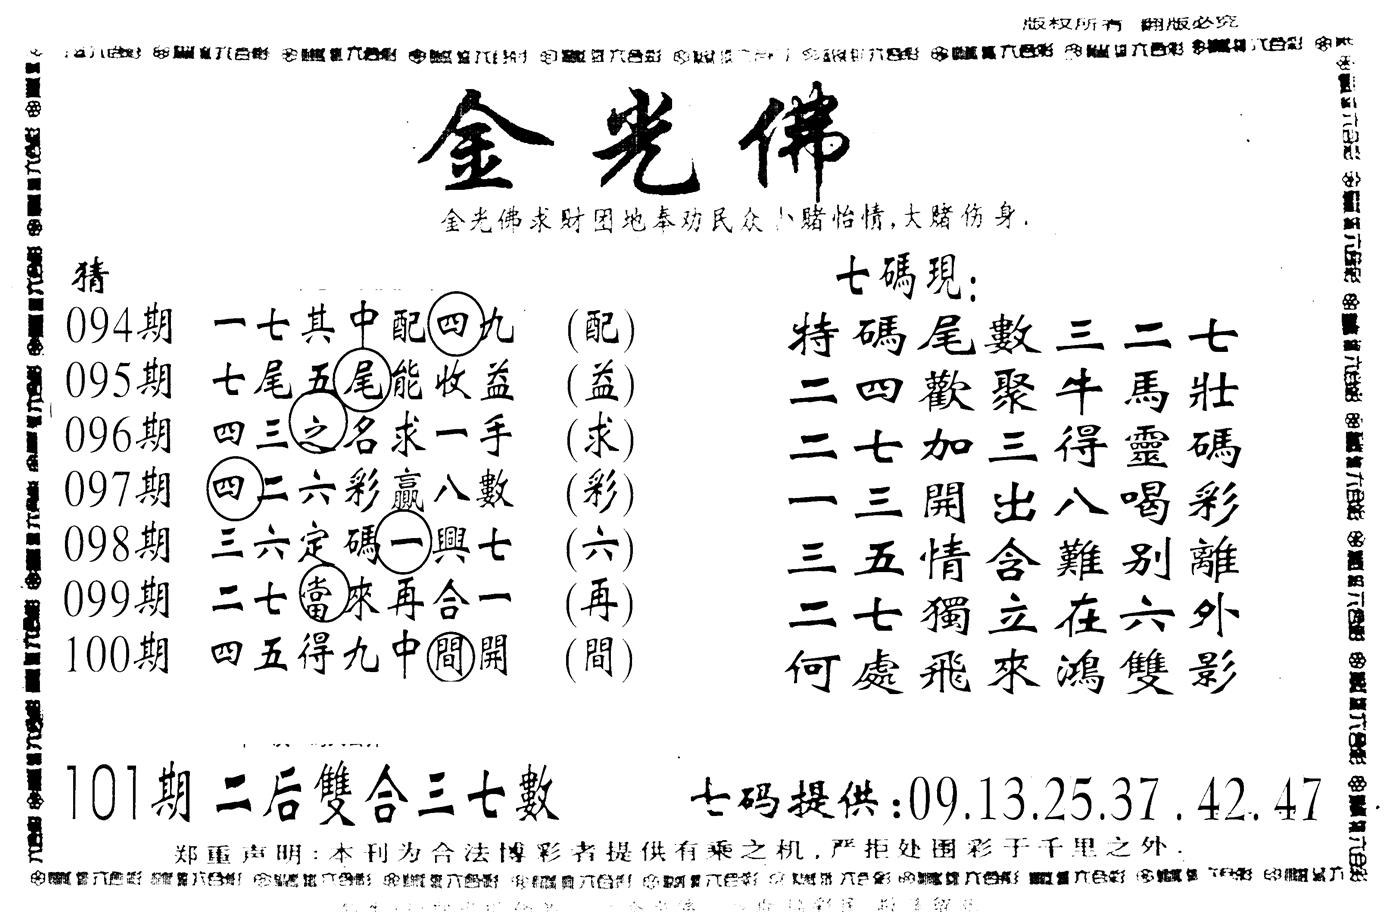 版权所有 翻版必究
金光佛
金光佛求财团地奉劝民众小赌怡情,大赌伤身.
猜
094期 一七其中配四九 (配)
095期 七尾五尾能收益 (益)
096期 四三之名求一手 (求)
097期 四二六彩贏八數 (彩)
098期 三六定碼一興七 (六)
099期 二七當來再合一 (再)
100期 四五得九中間開 (間)
七碼現:
特碼尾數三二七
二四歡聚牛馬壯
二七加三得靈碼
一三開出八喝彩
三五情含難别離
二七獨立在六外
何處飛來鴻雙影
101期 二后雙合三七數
七码提供:09.13.25.37.42.47
郑重声明:本刊为合法博彩者提供有乘之机,严拒处围彩于千里之外.